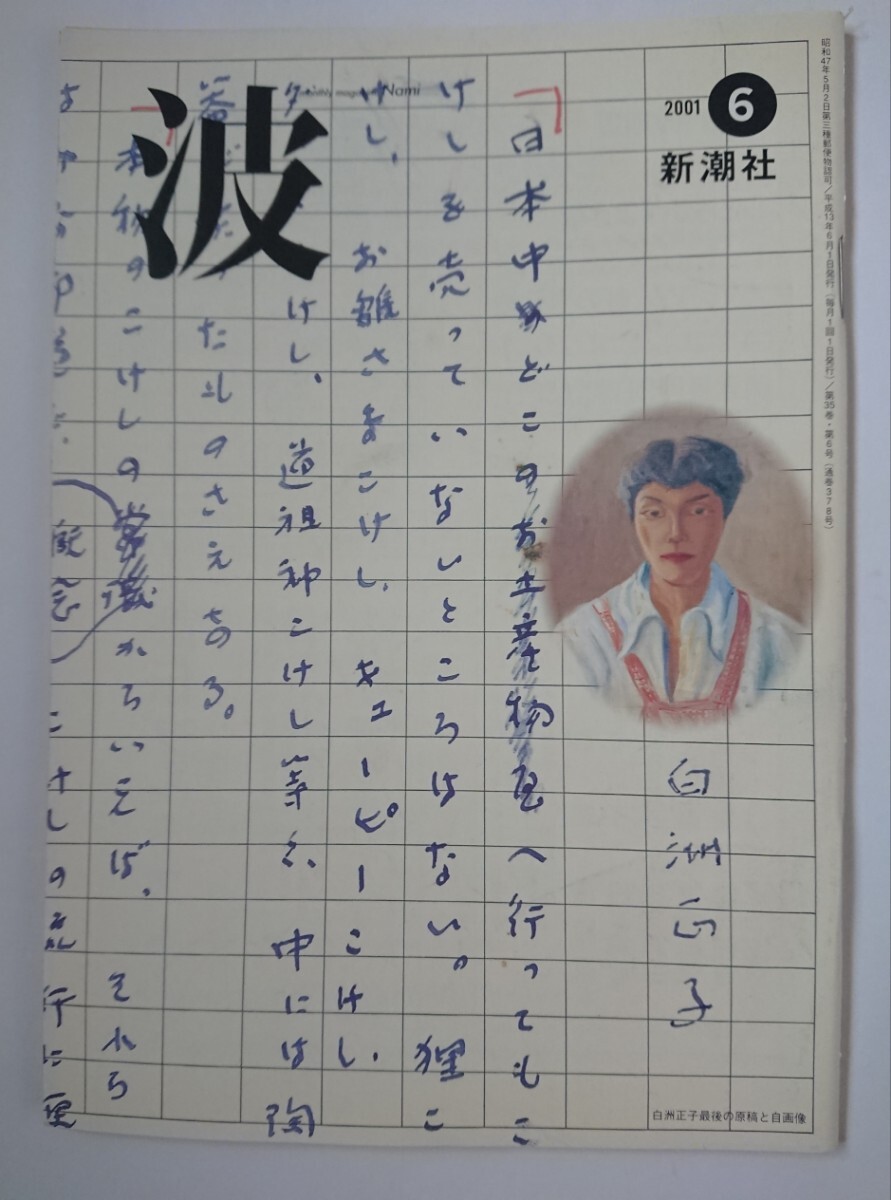 波
Nami
2001 6
新潮社
昭和47年5月2日第三種郵便物認可/平成13年6月1日発行(毎月1回1日発行)/第35巻・第6号(通巻378号)
白洲正子
日本中のどこのお土産物屋へ行ってもこ
けしを売っていないところはない。狸こ
けし、お雛さまこけし、キューピーこけし、
けし、道祖神こけし等々、中には陶
たれのさえある。
本物のこけしの常識からいえば、それら
概念
こけしの流行に便
白洲正子最後の原稿と自画像